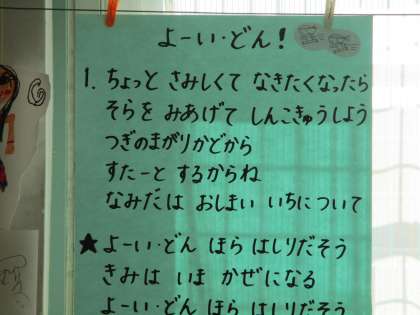 よーい・どん！
1. ちょっと さみしくて なきたくなったら
そらを みあげて しんこきゅうしよう
つぎのまがりかどから
すたーと するからね
なみだは おしまい いちについて
★よーい・どん ほら はしりだそう
きみは いま かぜになる
よーい・どん ほら はしりだそう